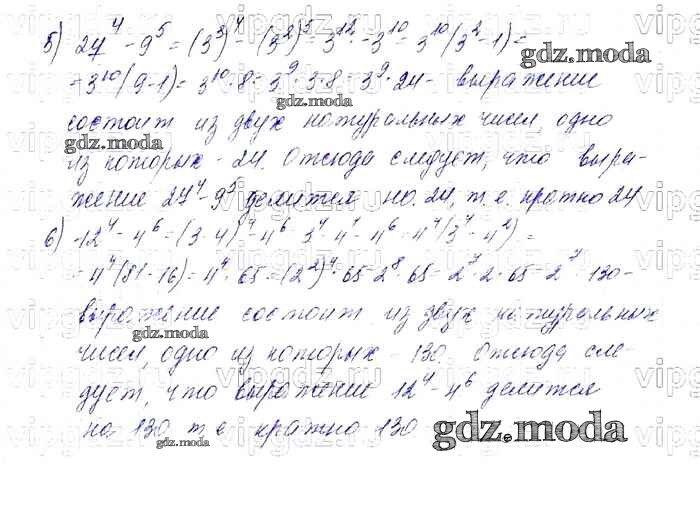 5) 27⁴ - 9⁵ = (3³)⁴ - (3²)⁵ = 3¹² - 3¹⁰ = 3¹⁰(3² - 1) =
= 3¹⁰(9-1) = 3¹⁰·8 = 3⁹·3·8 = 3⁹·24 - выражение
gdz.moda
состоит из двух натуральных чисел, одно
gdz.moda
из которых - 24. Отсюда следует, что выра-
жение 27⁴ - 9⁵ делится на 24, т.е. кратно 24
gdz.moda
6) 12⁴ - 4⁶ = (3·4)⁴ - 4⁶ = 3⁴·4⁴ - 4⁶ = 4⁴(3⁴ - 4²) =
= 4⁴(81-16) = 4⁴·65 = (2²)⁴·65 = 2⁸·65 = 2⁷·2·65 = 2⁷·130 -
выражение состоит из двух натуральных
gdz.moda
чисел, одно из которых - 130. Отсюда сле-
дует, что выражение 12⁴ - 4⁶ делится
gdz.moda
на 130 т.е кратно 130
gdz.moda
gdz.moda